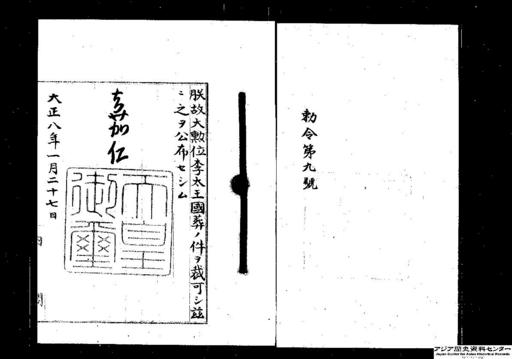 勅令第九號
朕故大勲位李太王國葬ノ件ヲ裁可シ茲
ニ之ヲ公布セシム
嘉仁
天皇御璽
大正八年一月二十七日
内閣
アジア歴史資料センター
Japan Center for Asian Historical Records